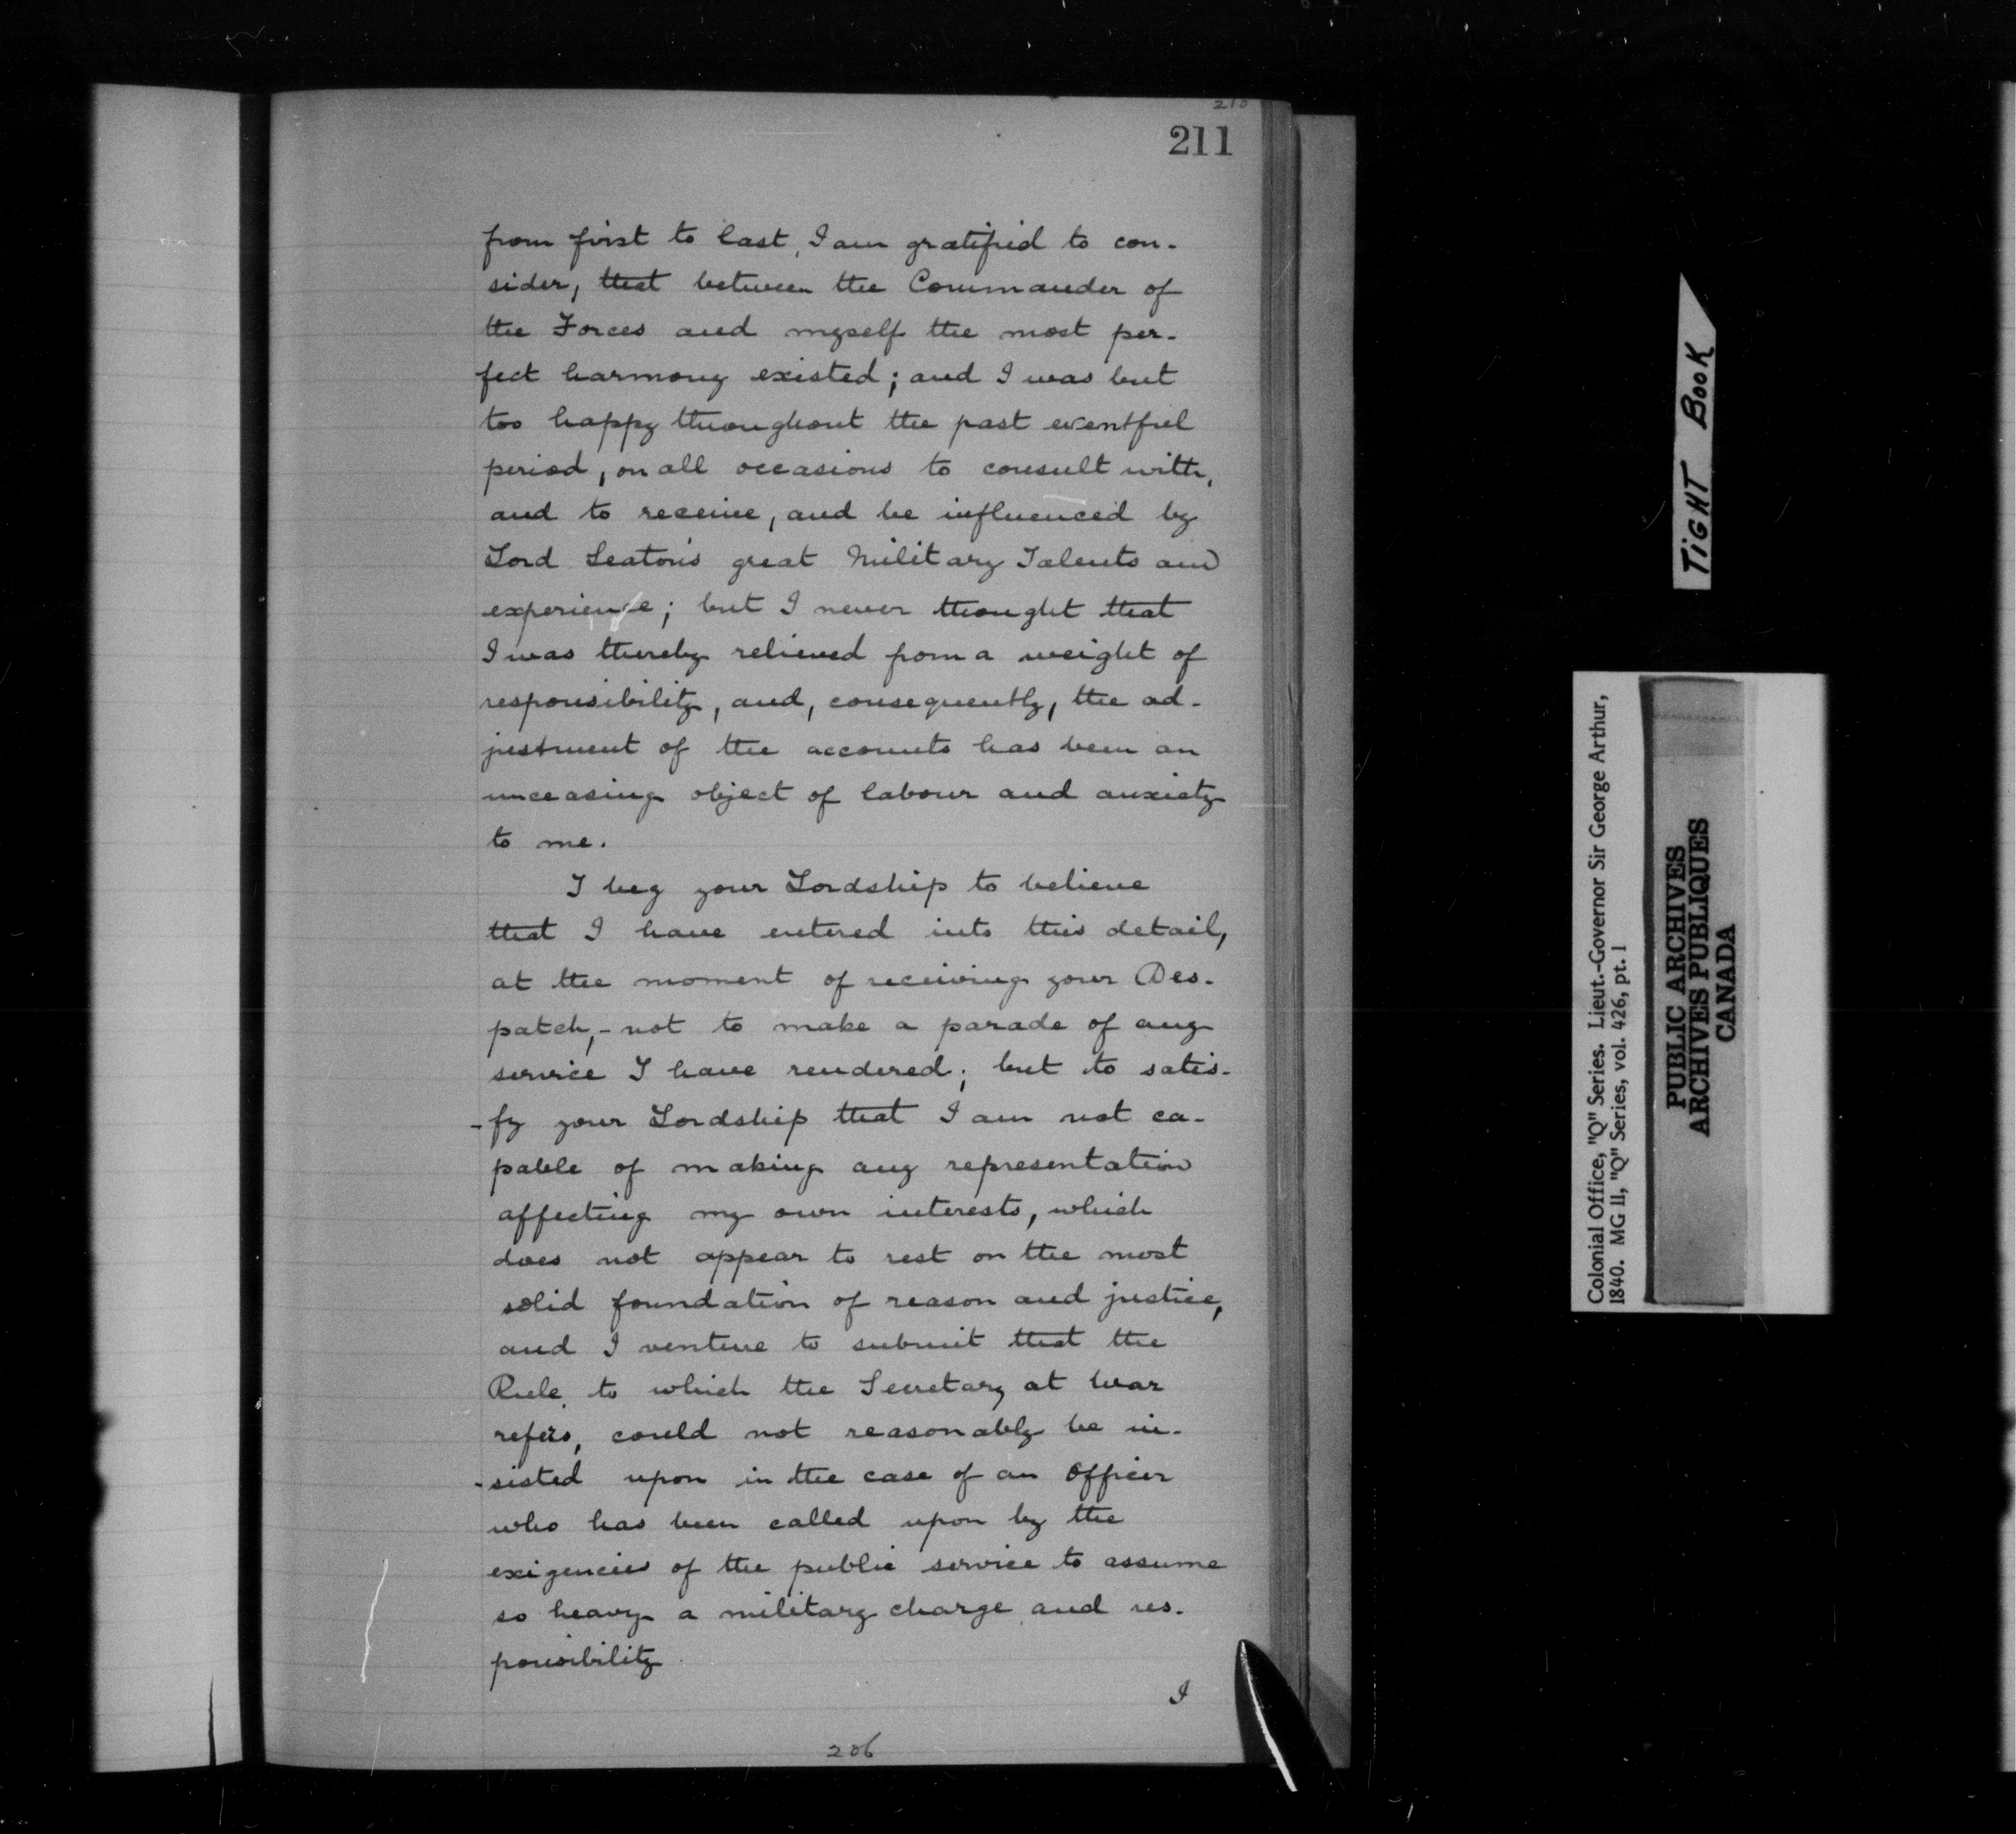 210
211
from first to last, I am gratified to con-
sider, that between the Commander of
the Forces and myself the most per-
fect harmony existed; and I was but
too happy throughout the past eventful
period, on all occasions to consult with,
and to receive, and be influenced by
Lord Seaton's great Military Talents and
experience; but I never thought that
I was thereby relieved from a weight of
responsibility, and, consequently, the ad-
justment of the accounts has been an
unceasing object of labour and anxiety
to me.
I beg your Lordship to believe
that I have entered into this detail,
at the moment of receiving your Des-
patch,- not to make a parade of any
service I have rendered; but to satis-
-fy your Lordship that I am not ca-
pable of making any representation
affecting my own interests, which
does not appear to rest on the most
solid foundation of reason and justice,
and I venture to submit that the
Rule, to which the Secretary at War
refers, could not reasonably be in-
-sisted upon in the case of an Officer
who has been called upon by the
exigencies of the public service to assume
so heavy a military charge and res-
ponsibility.
I
206
TIGHT BOOK
Colonial Office, "Q" Series. Lieut.-Governor Sir George Arthur,
1840. MG 11, "Q" Series, vol. 426, pt. 1
PUBLIC ARCHIVES
ARCHIVES PUBLIQUES
CANADA